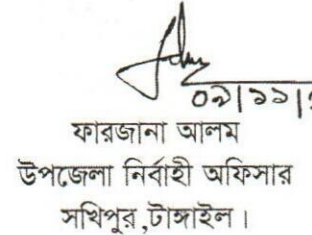 ০৯|১১|
ফারজানা আলম
উপজেলা নির্বাহী অফিসার
সখিপুর ,টাঙ্গাইল।